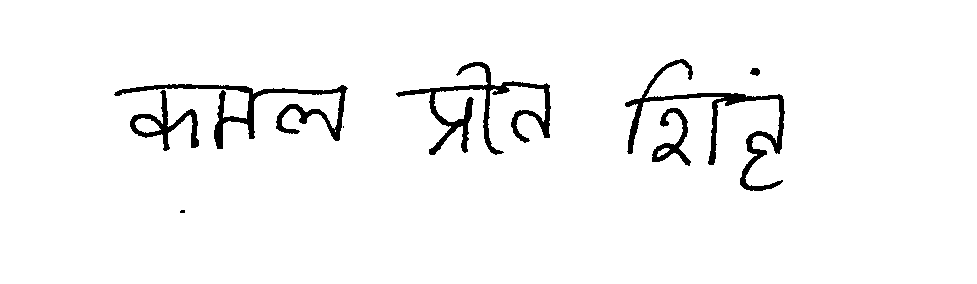 कमल प्रीत शिहं